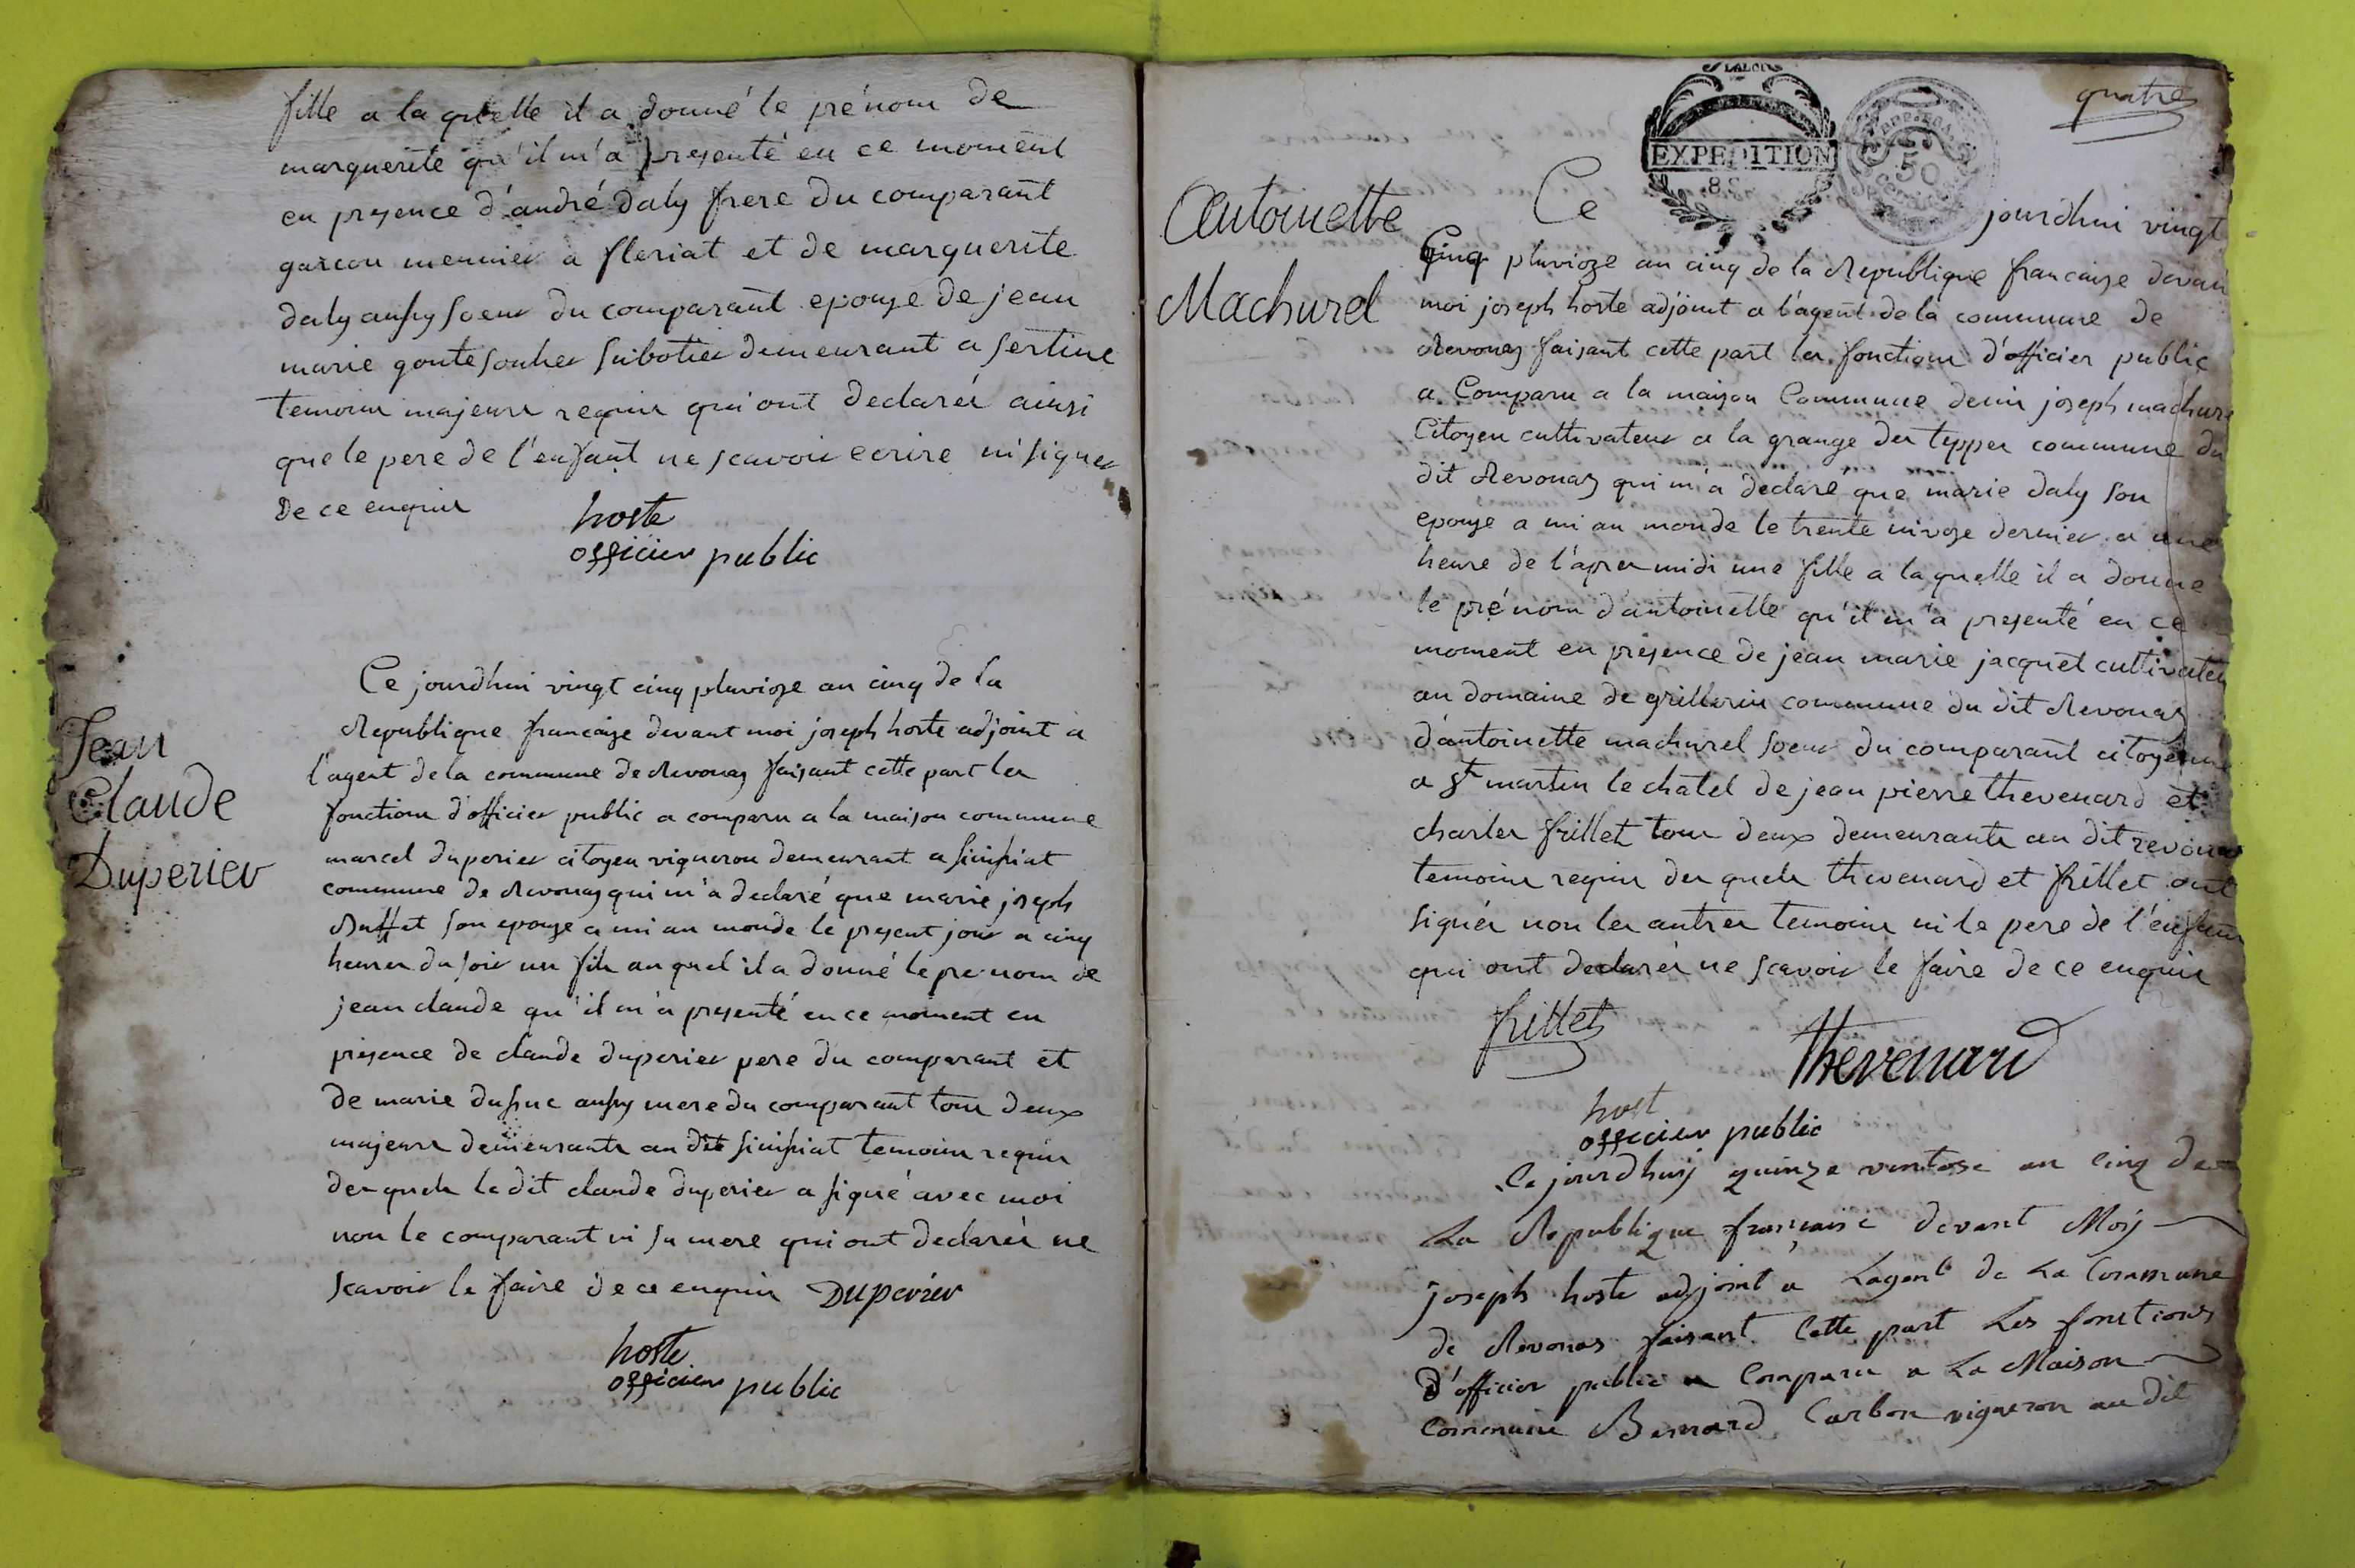 fille a la quelle il a donné le prénom de
marguerite qu'il m'a presenté en ce moment
en presence d'andré daly frere du comparant
garcon meunier a fleriat et de marguerite
daly aussy soeur du comparant epouse de jean
marie goutesoulier sabotier demeurant a sertine
temoins majeurs requis qui ont declarés ainsi
que le pere de l'enfant ne scavoir ecrire ni signer
de ce enquis
hoste
officier public
Jean
Claude
Duperier
Ce jourdhui vingt cinq pluviose an cinq de la
Republique francaise devant moi joseph hoste adjoint a
l'agent de la commune de Revonas faisant cette part les
fonctions d'officier public a comparu a la maison commune
marcel duperier citoyen vigneron demeurant a sinissiat
commune de Revonas qui m'a declaré que marie joseph
Buffet son epouse a mis au monde le present jour a cinq
heures du soir un fils au quel il a donné le prenom de
jean claude qu'il m'a presenté en ce moment en
presence de claude duperier pere du comparant et
de marie dusuc aussy mere du comparant tous deux
majeurs demeurants au dit sinissiat temoins requis
des quels le dit claude duperier a signé avec moi
non le comparant ni sa mere qui ont declarés ne
scavoir le faire de ce enquis Duperier
hoste
officier public
LA LOI
EXPEDITION
50
quatre
Antoinette
Machurel
Ce jourdhui vingt
Cinq pluviose an cinq de la Republique francaise devan
moi joseph hoste adjoint a l'agent de la commune de
Revonas faisant cette part les fonctions d'officier public
a Comparu a la maison Commune denis joseph machure
Citoyen cultivateur a la grange des teppes commune du
dit Revonas qui m'a declaré que marie daly son
epouse a mis au monde le trente nivose dernier a une
heure de l'apres midi une fille a la quelle il a donne
le prénom d'antoinette qu'il m'a presenté en ce
moment en presence de jean marie jacquet cultivateu
au domaine de grillerin commune du dit Revonas
d'antoinette machurel soeur du comparant citoyenne
a st martin le chatel de jean pierre thevenard et
charles frillet tous deux demeurants au dit revonas
temoins requis des quels thevenard et frillet ont
signés non les autres temoins ni le pere de l'enfant
qui ont declarés ne scavoir le faire de ce enquis
frillet
Thevenard
host
officier public
Ce jourdhuij quinze ventose an Cinq de
La Republique française devant Moij
joseph hoste adjoint a Lagent de La Commune
de Revonas faisant Cette part Les fonctions
d'officier public a Comparu a La Maison
Commune Bernard Carbon vigneron au dit